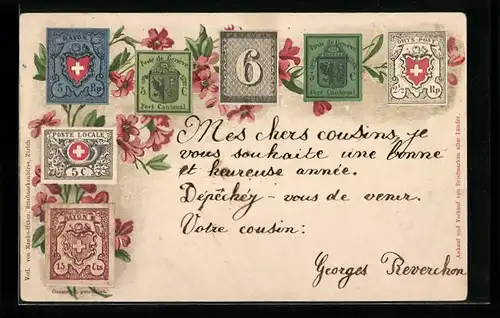 RAYON
5 Rp
Poste de Genève
5 C
Port Cantonal
6
Poste de Genève
5 C
Port Cantonal
ORTS-POST
2½ Rp
POSTE LOCALE
5 C
RAYON
15 Cts
Mes chers cousins, je
vous souhaite une bonne
et heureuse année.
Dépêchéy - vous de venir.
Votre cousin:
Georges Reverchon
Ankauf und Verkauf von Briefmarken aller Länder.